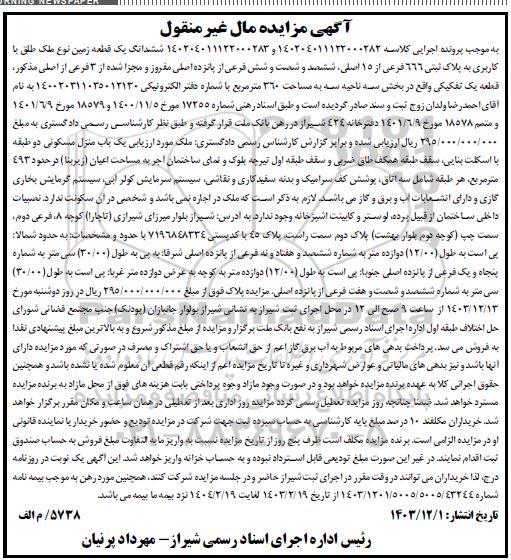 RNING NEWSPAPER
آگهی مزایده مال غیرمنقول
به موجب پرونده اجرایی کلاسه ۱۴۰۲۰۴۰۱۱۱۲۲۰۰۰۲۸۲ و ۱۴۰۲۰۴۰۱۱۱۲۲۰۰۰۲۸۳ ششدانگ یک قطعه زمین نوع ملک طلق با
کاربری به پلاک ثبتی ۶۶۶ فرعی از ۱۵ اصلی، ششصد و شصت و شش فرعی از پانزده اصلی مفروز و مجزا شده از ۳ فرعی از اصلی مذکور،
قطعه یک تفکیکی واقع در بخش سه ناحیه سه به مساحت ۳۶۰ مترمربع با شماره دفتر الکترونیکی ۱۴۰۰۲۰۳۱۱۰۳۵۰۱۲۱۳۰ به نام
آقای احمدرضا ولدان زوج ثبت و سند صادر گردیده است و طبق اسناد رهنی شماره ۱۷۲۵۵ مورخ ۱۴۰۰/۱۱/۵ و ۱۸۵۷۹ مورخ ۱۴۰۱/۶/۹
و متمم ۱۸۵۷۸ مورخ ۱۴۰۱/۶/۹ دفترخانه ۴۳۴ شیراز در رهن بانک ملت قرار گرفته و طبق نظر کارشناسی رسمی دادگستری به مبلغ
۲۹۵/۰۰۰/۰۰۰/۰۰۰ ریال ارزیابی شده و برابر گزارش کارشناس رسمی دادگستری: ملک مورد ارزیابی یک باب منزل مسکونی دو طبقه
با اسکلت بنایی، سقف طبقه همکف طاق ضربی و سقف طبقه اول تیرچه بلوک و نمای ساختمان آجر به مساحت اعیان (زیربنا) درحدود ۴۹۳
مترمربع، هر طبقه شامل سه اتاق، پوشش کف سرامیک و بدنه سفیدکاری و نقاشی، سیستم سرمایش کولر آبی، سیستم گرمایش بخاری
گازی و دارای انشعابات آب و برق و گاز می باشد. لازم به ذکر است که ملک در اجاره نمی باشد و شخصی در آن سکونت ندارد. نصبیات
داخلی ساختمان از قبیل پرده، لوستر و کابینت آشپزخانه وجود ندارد. به آدرس: شیراز بلوار میرزای شیرازی (تاچارا) کوچه ۸، فرعی دوم،
سمت چپ (کوچه دوم بلوار بهشت) پلاک دوم سمت راست، پلاک ۴۵ با کدپستی ۷۱۹۶۸۴۸۳۳۴ با حدود و مشخصات: به حدود شمالا:
پی است به طول (۱۲/۰۰) دوازده متر به شماره ششصد و هفتاد و نه فرعی از پانزده اصلی شرقا: به پی به طول (۳۰/۰۰) سی متر به شماره
پنجاه و یک فرعی از پانزده اصلی جنوبا: پی است به طول (۱۲/۰۰) دوازده متر به کوچه به عرض دوازده متر غربا: پی است به طول (۳۰/۰۰)
سی متر به شماره ششصد و شصت و هفت فرعی از پانزده اصلی. مزایده پلاک فوق از مبلغ ۲۹۵/۰۰۰/۰۰۰/۰۰۰ ریال در روز دوشنبه مورخ
۱۴۰۳/۱۲/۱۳ از ساعت ۹ صبح الی ۱۲ در محل اجرای ثبت شیراز به نشانی شیراز بولوار جانبازان (پودنک) جنب مجتمع قضائی شورای
حل اختلاف طبقه اول اداره اجرای اسناد رسمی شیراز به نفع بانک ملت برگزار و مزایده از مبلغ مذکور شروع و به بالاترین مبلغ پیشنهادی نقدا
به فروش می رسد. پرداخت بدهی های مربوط به آب برق گاز اعم از حق انشعاب و یا حق اشتراک و مصرف در صورتی که مورد مزایده دارای
آنها باشد و نیز بدهی های مالیاتی و عوارض شهرداری و غیره تا تاریخ مزایده اعم از اینکه رقم قطعی آن معلوم شده یا نشده باشد و همچنین
حقوق اجرائی کلا به عهده برنده مزایده خواهد بود و در صورت وجود مازاد وجوه پرداختی بابت هزینه های فوق از محل مازاد به برنده مزایده
مسترد خواهد شد. ضمنا چنانچه روز مزایده تعطیل رسمی گردد مزایده روز اداری بعد از تعطیلی در همان ساعت و مکان مقرر برگزار خواهد
شد. خریداران مکلفند ۱۰ درصد مبلغ پایه کارشناسی به حساب سپرده ثبت جهت شرکت در مزایده تودیع و حضور خریدار یا نماینده قانونی
او در مزایده الزامی است. برنده مزایده مکلف است ظرف پنج روز از تاریخ مزایده نسبت به واریز مابه التفاوت مبلغ فروش به حساب صندوق
ثبت اقدام نمایند. در غیر این صورت مبلغ تودیعی قابل استرداد نبوده و به حساب خزانه واریز خواهد شد. این آگهی یک نوبت در روزنامه
درج، لذا خریداران می توانند در وقت مقرر در اجرای ثبت شیراز حاضر و در جلسه مزایده شرکت کنند، همچنین مورد رهن به موجب بیمه نامه
شماره ۱۴۰۳/۱۲۰۱/۵۰۰۵/۵۰۰۵/۴۳۲۴۴ از تاریخ ۱۴۰۳/۲/۱۹ لغایت ۱۴۰۴/۲/۱۹ نزد بیمه ما بیمه می باشد.
تاریخ انتشار: ۱۴۰۳/۱۲/۱
۵۷۳۸/ م الف
رئیس اداره اجرای اسناد رسمی شیراز - مهرداد پرنیان